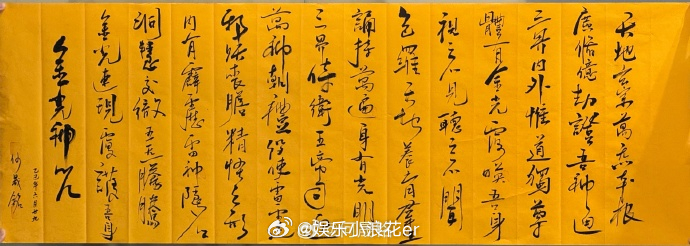 天地玄宗萬炁本根
廣脩億劫證吾神通
三界內外惟道獨尊
體有金光覆映吾身
視之不見聽之不聞
包羅天地養育羣
誦持萬遍身有光明
三界侍衛五帝司
萬神朝禮役使雷
鬼妖喪膽精怪亡形
內有霹靂雷神隱名
洞慧交徹五炁騰騰
金光速現覆護吾身
金光神咒
乙巳年六月廿九
何晟銘
@娱乐小浪花er